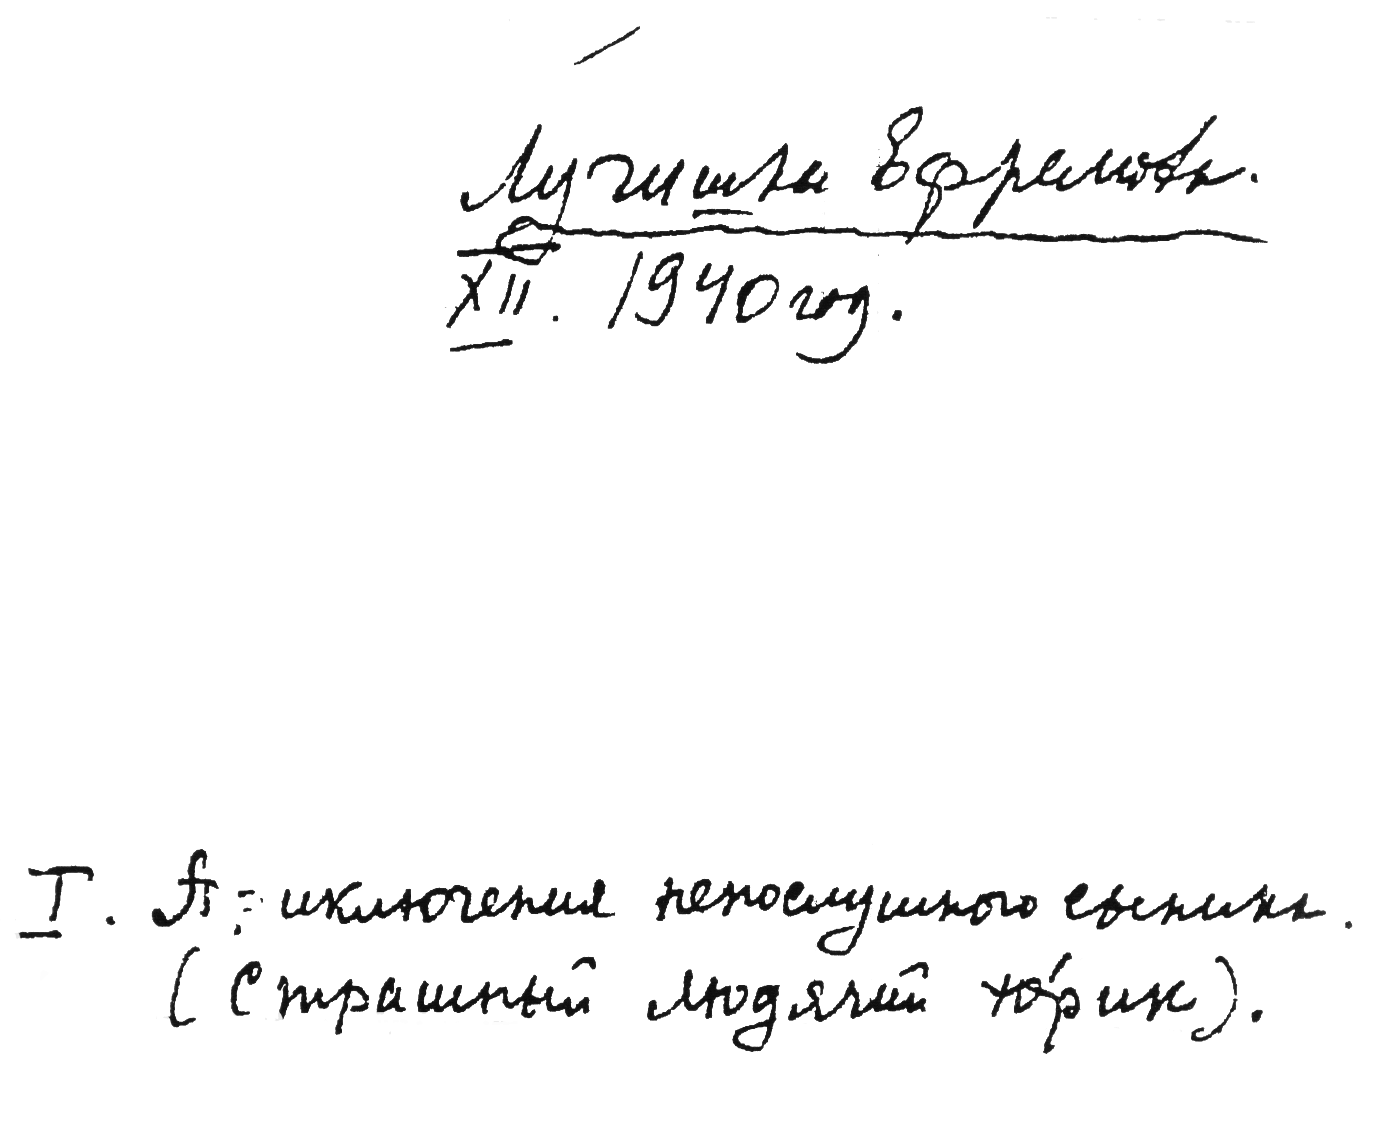 Лучишка Ефремова.
XII. 1940 год.
I. А: иключения непослушного сынишки.
(Страшный людячий юрик).